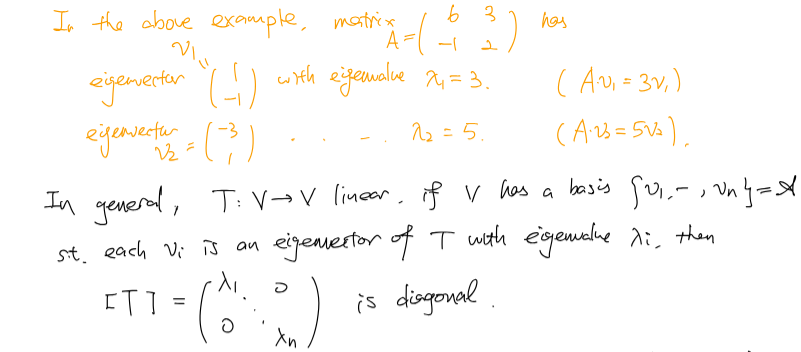 In the above example, matrix A = ( 6 3 ; -1 2 ) has
eigenvector v₁ = ( 1 ; -1 ) with eigenvalue λ₁ = 3. ( A·v₁ = 3v₁ )
eigenvector v₂ = ( -3 ; 1 ) . . - . λ₂ = 5. ( A·v₂ = 5v₂ ).
In general, T: V → V linear. if V has a basis { v₁, -, vn } = A
s.t. each vi is an eigenvector of T with eigenvalue λi, then
[T] = ( λ₁ 0 ⋱ 0 λn ) is diagonal.